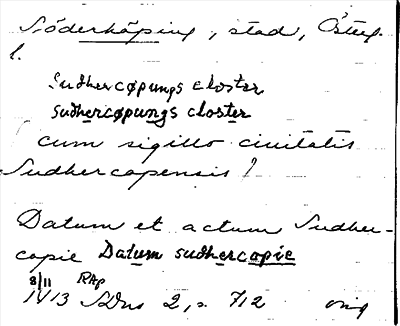 Söderköping, stad, Österg.
l.
Sudhercøpungs closter
sudhercøpungs closter
cum sigillo ciuitatis
Sudhercopensis l
Datum et actum Sudher-
copie Datum sudhercopie
8/11 RAp
1413 SDns 2, s. 712 orig